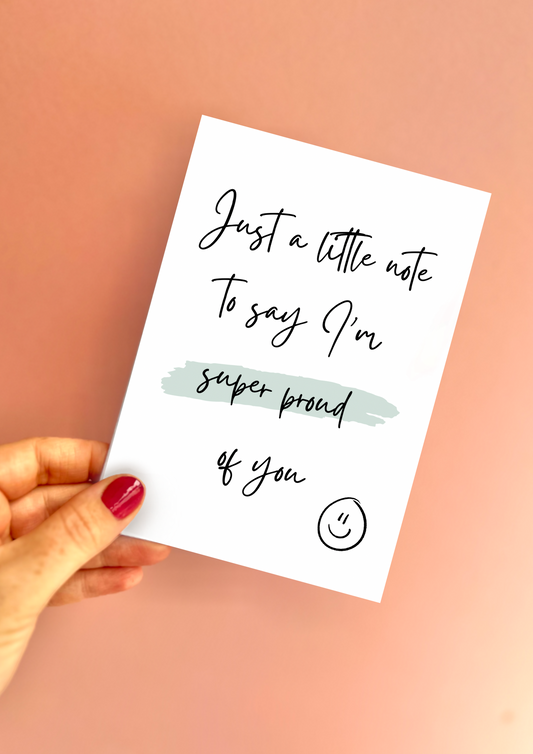 Just a little note
to say I'm
super proud
of you